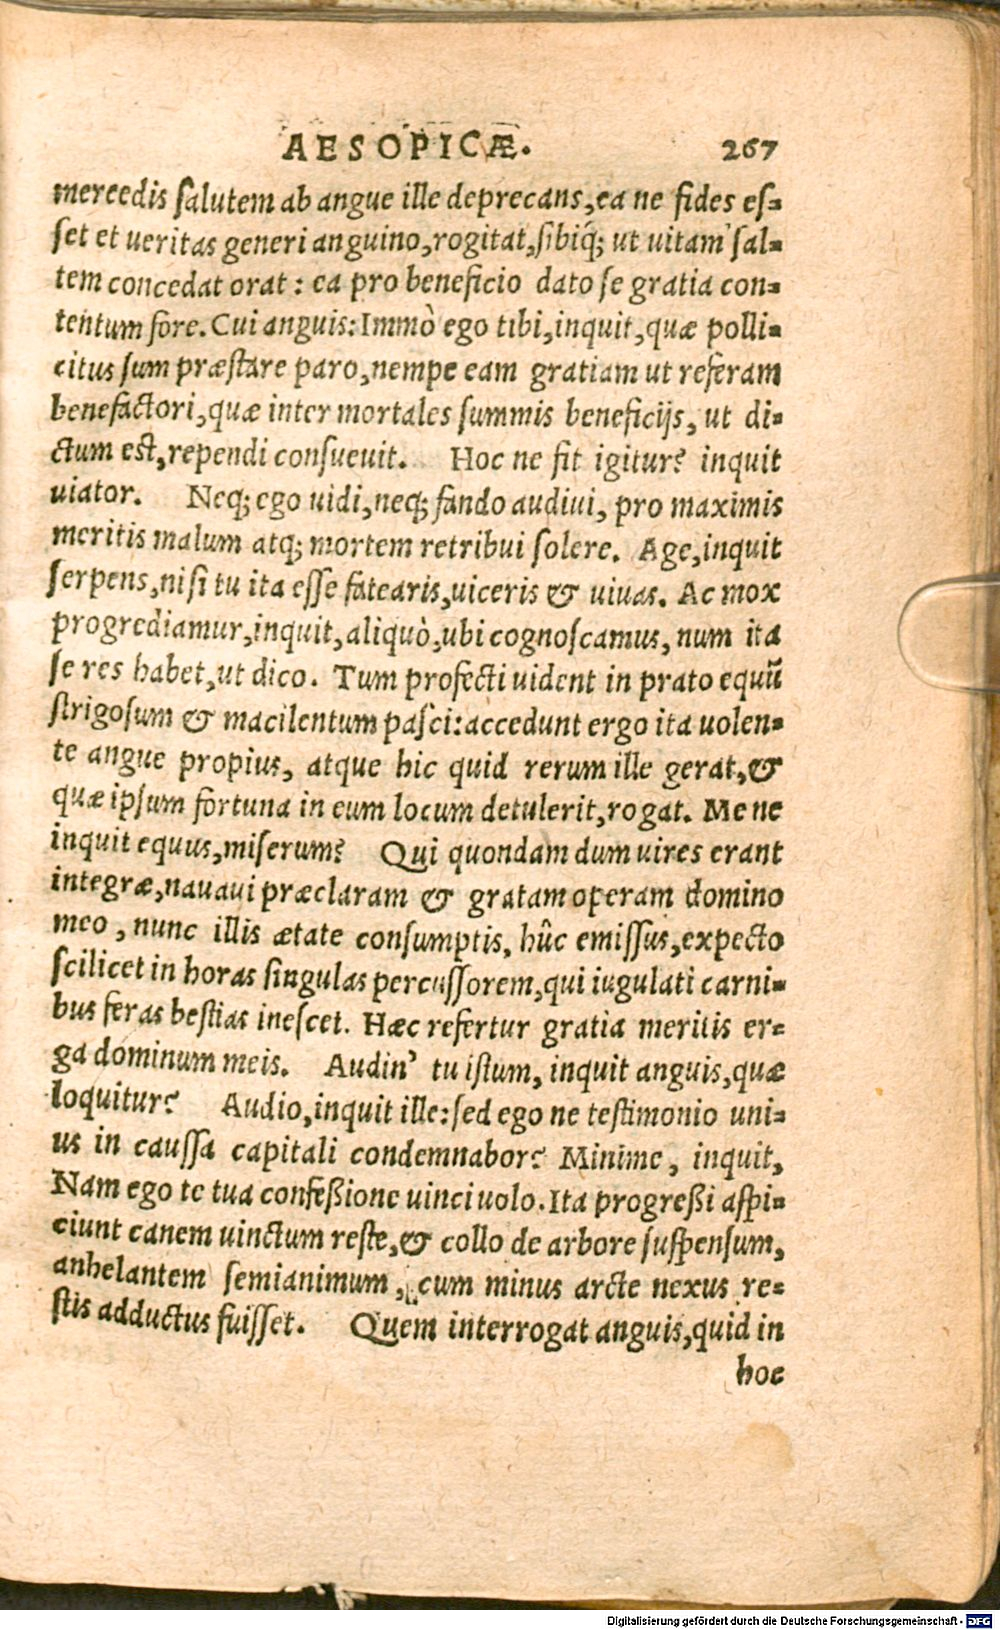 AESOPICÆ. 267
mercedis salutem ab angue ille deprecans, ea ne fides es=
set et ueritas generi anguino, rogitat, sibiq́; ut uitam sal=
tem concedat orat: ea pro beneficio dato se gratia con=
tentum fore. Cui anguis: Immò ego tibi, inquit, quæ polli=
citus sum præstare paro, nempe eam gratiam ut referam
benefactori, quæ inter mortales summis beneficijs, ut di=
ctum est, rependi consueuit. Hoc ne fit igitur? inquit
uiator. Neq; ego uidi, neq; fando audiui, pro maximis
meritis malum atq; mortem retribui solere. Age, inquit
serpens, nisi tu ita esse fatearis, uiceris & uiuas. Ac mox
progrediamur, inquit, aliquò, ubi cognoscamus, num ita
se res habet, ut dico. Tum profecti uident in prato equū
strigosum & macilentum pasci: accedunt ergo ita uolen=
te angue propius, atque hic quid rerum ille gerat, &
quæ ipsum fortuna in eum locum detulerit, rogat. Me ne
inquit equus, miserum? Qui quondam dum uires erant
integræ, nauaui præclaram & gratam operam domino
meo, nunc illis ætate consumptis, hûc emissus, expecto
scilicet in horas singulas percussorem, qui iugulati carni=
bus feras bestias inescet. Hæc refertur gratia meritis er=
ga dominum meis. Audin' tu istum, inquit anguis, quæ
loquitur? Audio, inquit ille: sed ego ne testimonio uni=
us in caussa capitali condemnabor? Minime, inquit,
Nam ego te tua confeßione uinci uolo. Ita progreßi aspi=
ciunt canem uinctum reste, & collo de arbore suspensum,
anhelantem semianimum, cum minus arcte nexus re=
stis adductus fuisset. Quem interrogat anguis, quid in
hoc
Digitalisierung gefördert durch die Deutsche Forschungsgemeinschaft - DFG